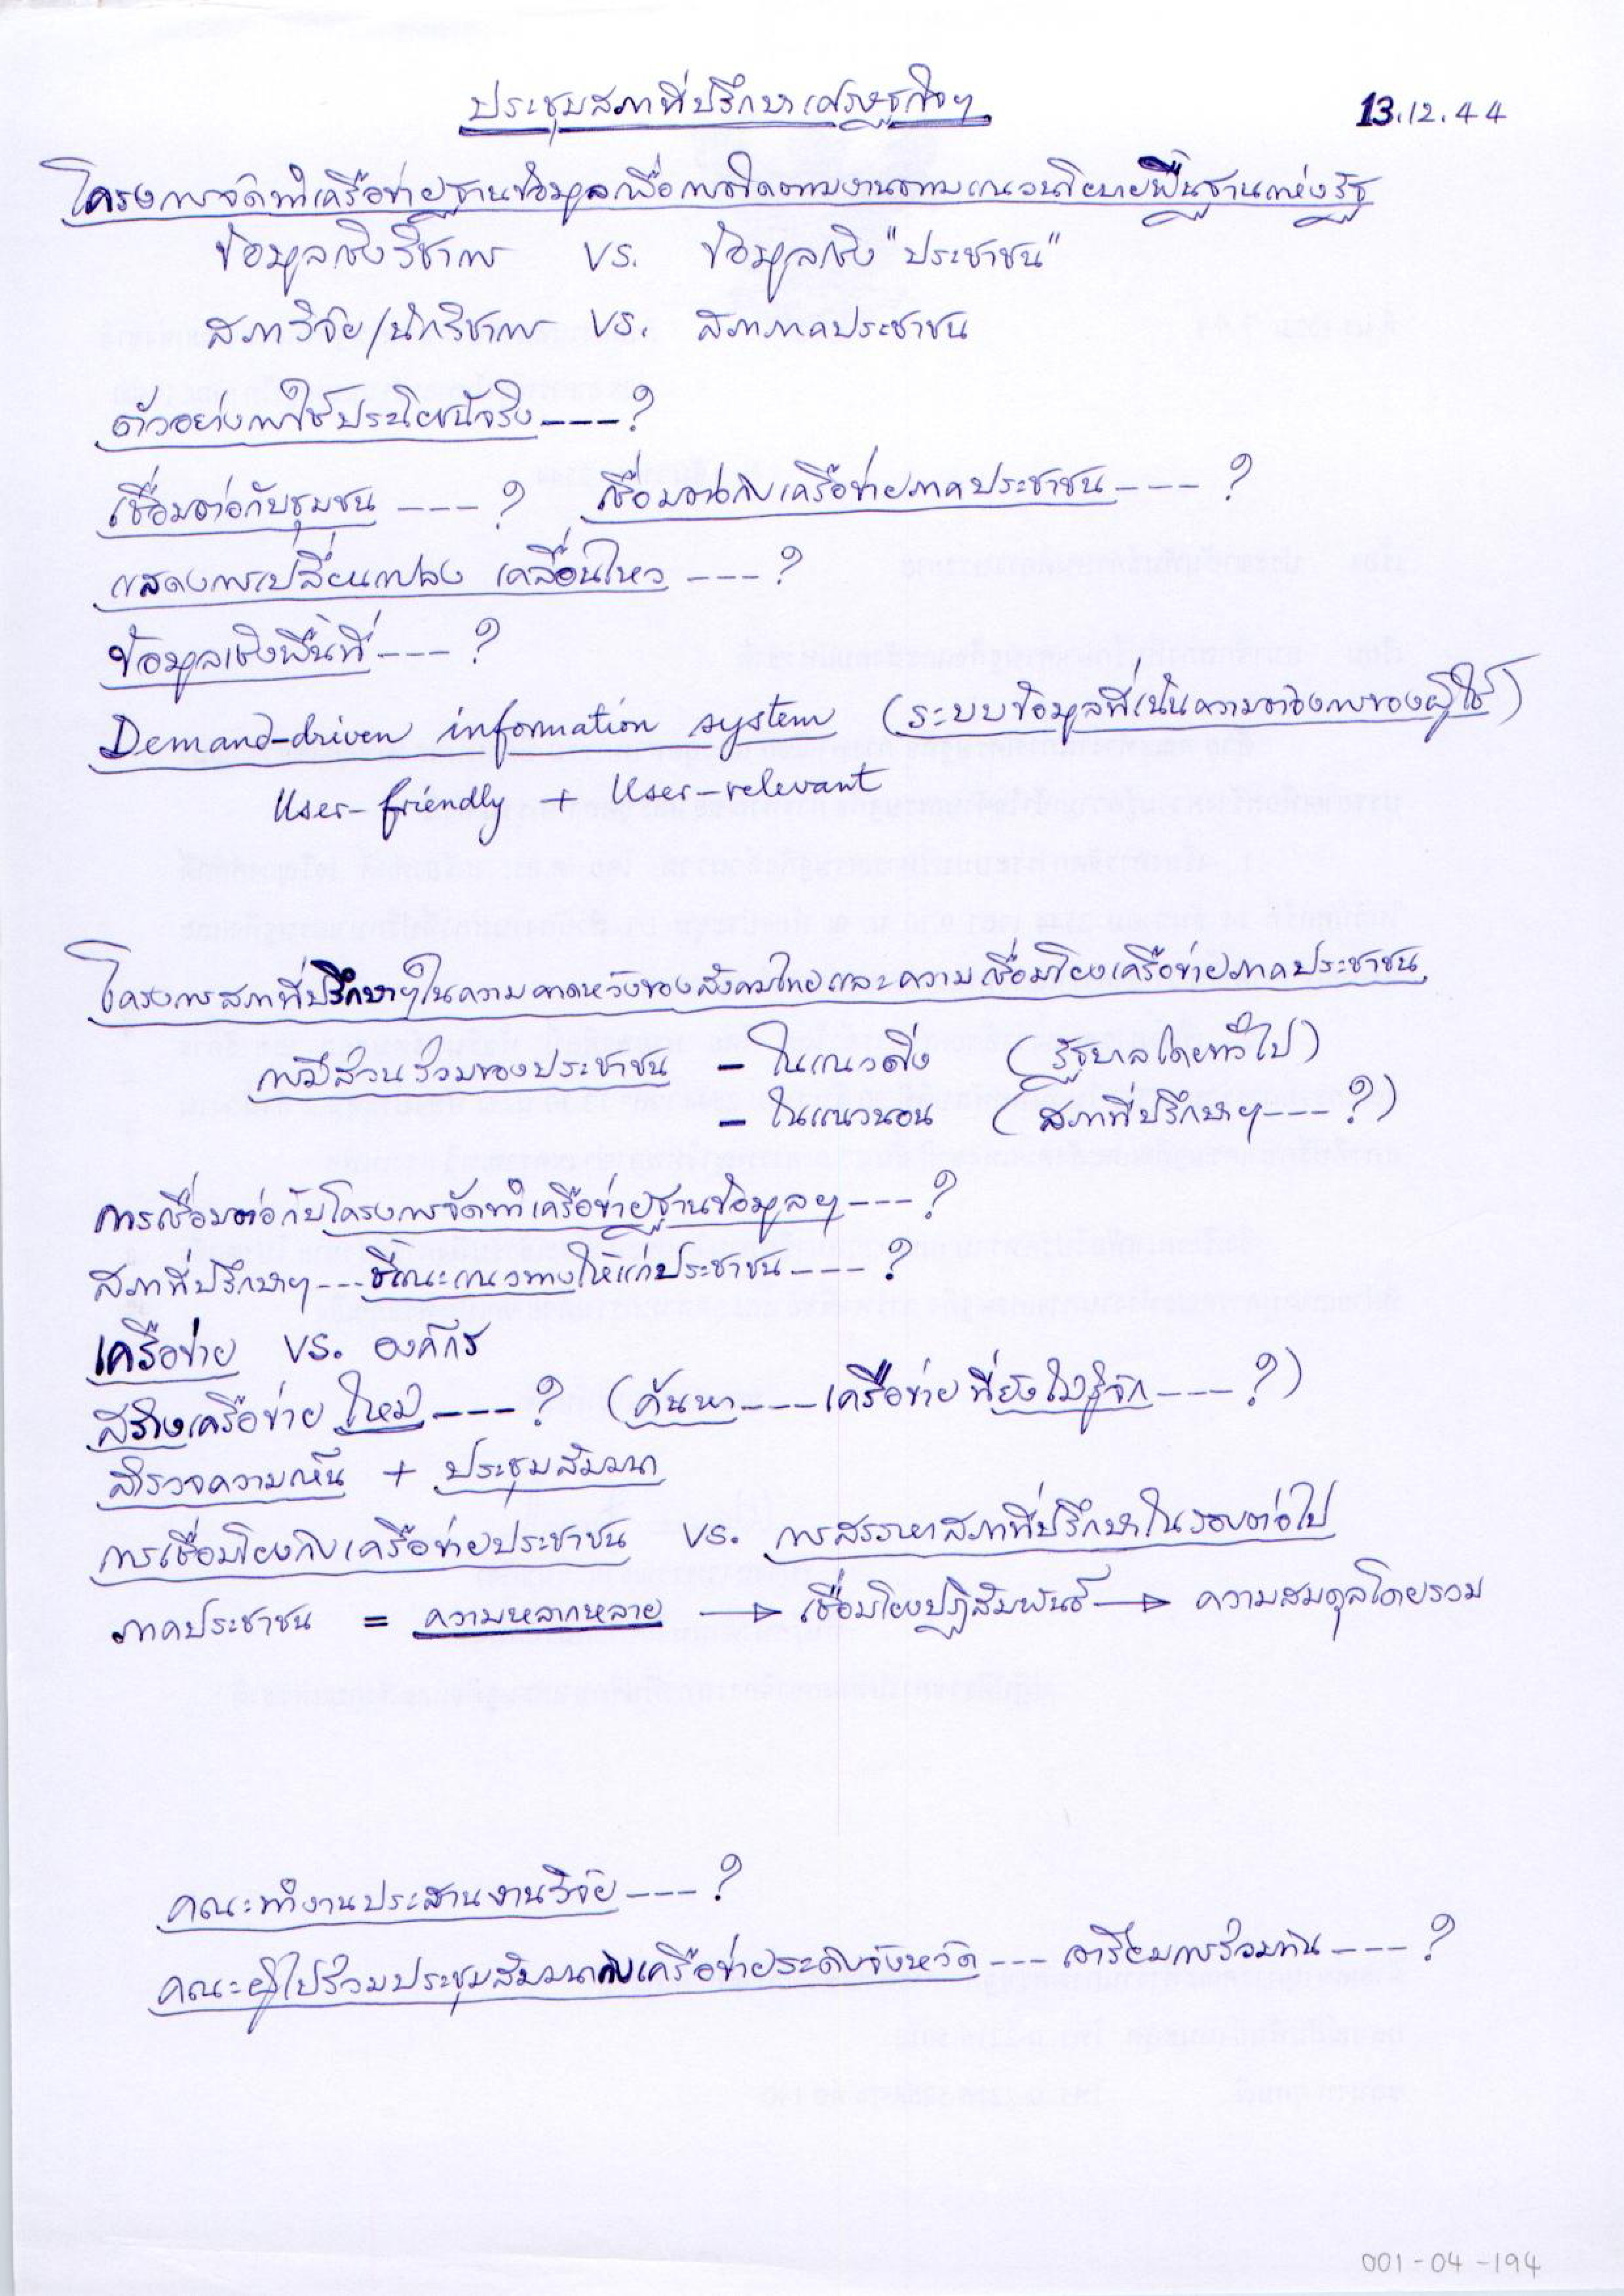 ประชุมสภาที่ปรึกษาเศรษฐกิจฯ 13.12.44
โครงการจัดทำเครือข่ายฐานข้อมูลเพื่อการติดตามงานตามแนวนโยบายพื้นฐานแห่งรัฐ
ข้อมูลเชิงวิชาการ VS. ข้อมูลเชิง "ประชาชน"
สภาวิจัย/นักวิชาการ VS. สภาภาคประชาชน
ตัวอย่างการใช้ประโยชน์จริง ---- ?
เชื่อมต่อกับชุมชน ---- ? เชื่อมต่อกับเครือข่ายภาคประชาชน ---- ?
แสดงการเปลี่ยนแปลง เคลื่อนไหว ---- ?
ข้อมูลเชิงพื้นที่ ---- ?
Demand-driven information system (ระบบข้อมูลที่เน้นความต้องการของผู้ใช้)
User-friendly + User-relevant
โครงการสภาที่ปรึกษาฯในความคาดหวังของสังคมไทยและความเชื่อมโยงเครือข่ายภาคประชาชน
การมีส่วนร่วมของประชาชน – ในแนวดิ่ง (รัฐบาลโดยทั่วไป)
– ในแนวนอน (สภาที่ปรึกษาฯ ---- ?)
การเชื่อมต่อกับโครงการจัดทำเครือข่ายฐานข้อมูลฯ ---- ?
สภาที่ปรึกษาฯ ---- ชี้แนะแนวทางให้แก่ประชาชน ---- ?
เครือข่าย VS. องค์กร
สร้างเครือข่ายใหม่ ---- ? (ค้นหา ---- เครือข่ายที่ยังไม่รู้จัก ---- ?)
สำรวจความเห็น + ประชุมสัมมนา
การเชื่อมโยงกับเครือข่ายประชาชน VS. การสรรหาสภาที่ปรึกษาในรอบต่อไป
ภาคประชาชน = ความหลากหลาย → เชื่อมโยงปฏิสัมพันธ์ → ความสมดุลโดยรวม
คณะทำงานประสานงานวิจัย ---- ?
คณะผู้ไปร่วมประชุมสัมมนากับเครือข่ายระดับจังหวัด ---- เตรียมการร่วมกัน ---- ?
001-04-194